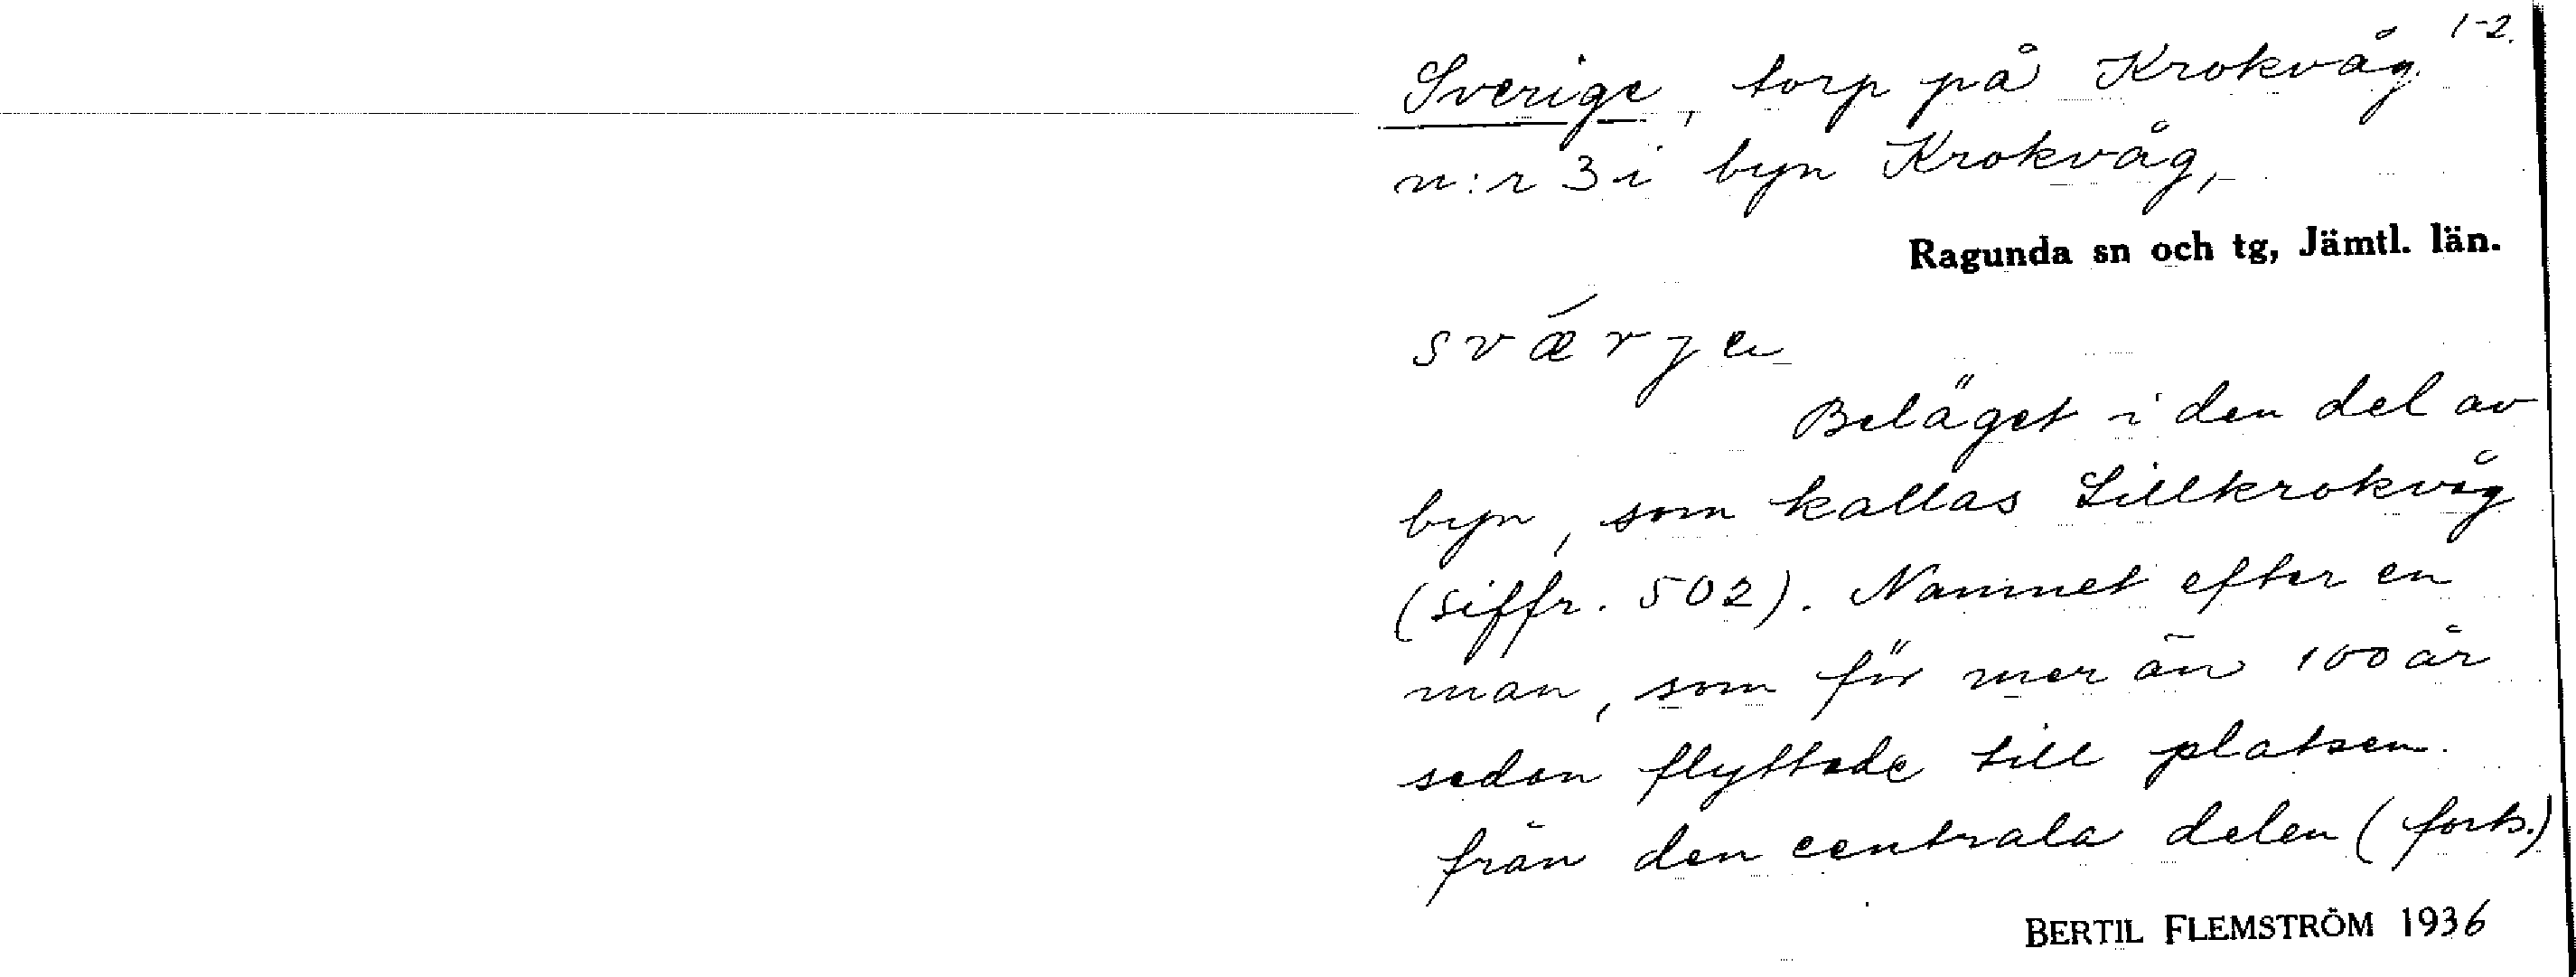 1-2.
Sverige, torp på Krokvåg
n:r 3 i byn Krokvåg,
Ragunda sn och tg, Jämtl. län.
Beläget i den del av
byn, som kallas Lillkrokvåg
(siffr. 502). Namnet efter en
man, som för mer än 100 år
sedan flyttade till platsen
från den centrala delen (forts.)
BERTIL FLEMSTRÖM 1936